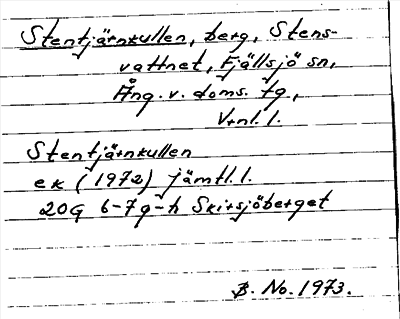 Stentjärnkullen, berg, Stens-
vattnet, Fjällsjö sn,
Ång. v. doms. fg,
V-nl. l.
Stentjärnkullen
ek (1972) jämtl. l.
20G 6-7g-h Skirsjöberget
B. No. 1973.